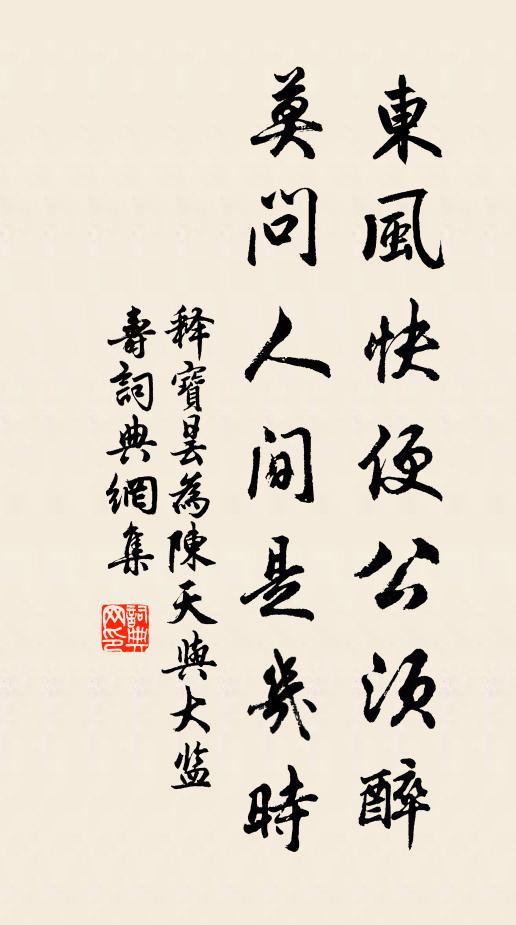 東風快便公須醉
莫問人间是幾時
释寶昙為陳天與大监
壽詞典網集
詞典网印